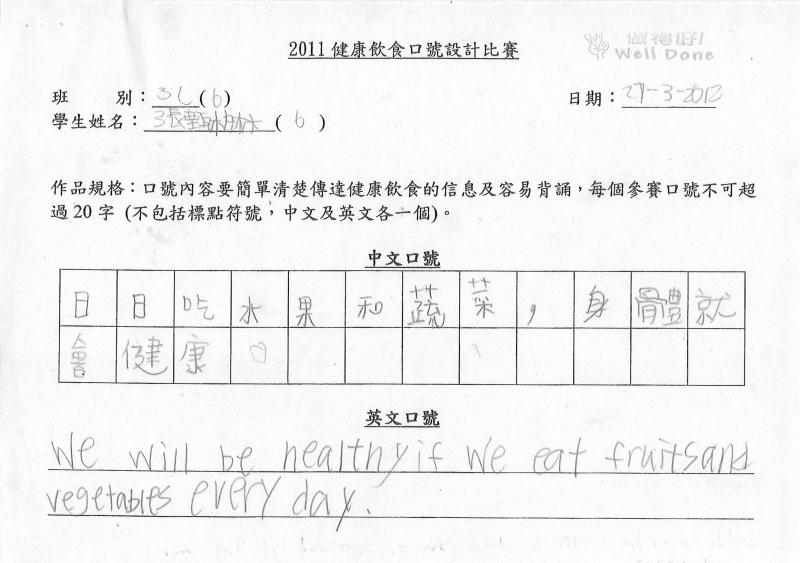 2011 健康飲食口號設計比賽
做得好!
Well Done
班 別：3L(6)
日期：27-3-2012
學生姓名：張 ( 6 )
作品規格：口號內容要簡單清楚傳達健康飲食的信息及容易背誦，每個參賽口號不可超
過 20 字 (不包括標點符號，中文及英文各一個)。
中文口號
日日吃水果和蔬菜，身體就
會健康。
英文口號
We will be healthy if we eat fruits and
vegetables every day.